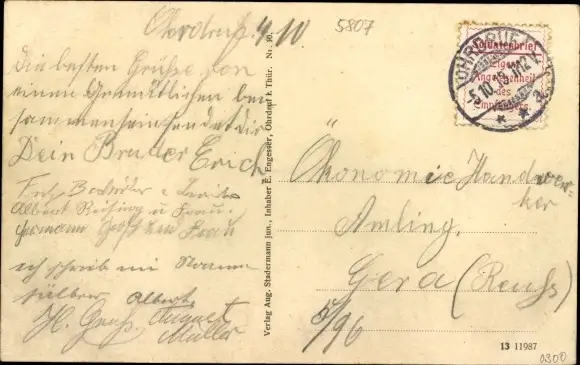 Ohrdruf. 4/10
5807
Die besten Grüße von
einem Gemütlichen bei
sammensein sendet dir
Dein Bruder Erich
Albert u Frau.
Hermann Frau
ich schreib mi
sülber Albert
H. Gruß. August
Müller
Verlag Aug. Stadermann jun., Inhaber E. Engesser, Ohrdruf i. Thür. Nr. 30.
Soldatenbrief
Eigene
Angelegenheit
des
Empfängers.
OHRDRUF
5.10.
* * a
Ökonomie Handwer-
ker
Amling.
Gera (Reuß)
5/96
13 11987
0300